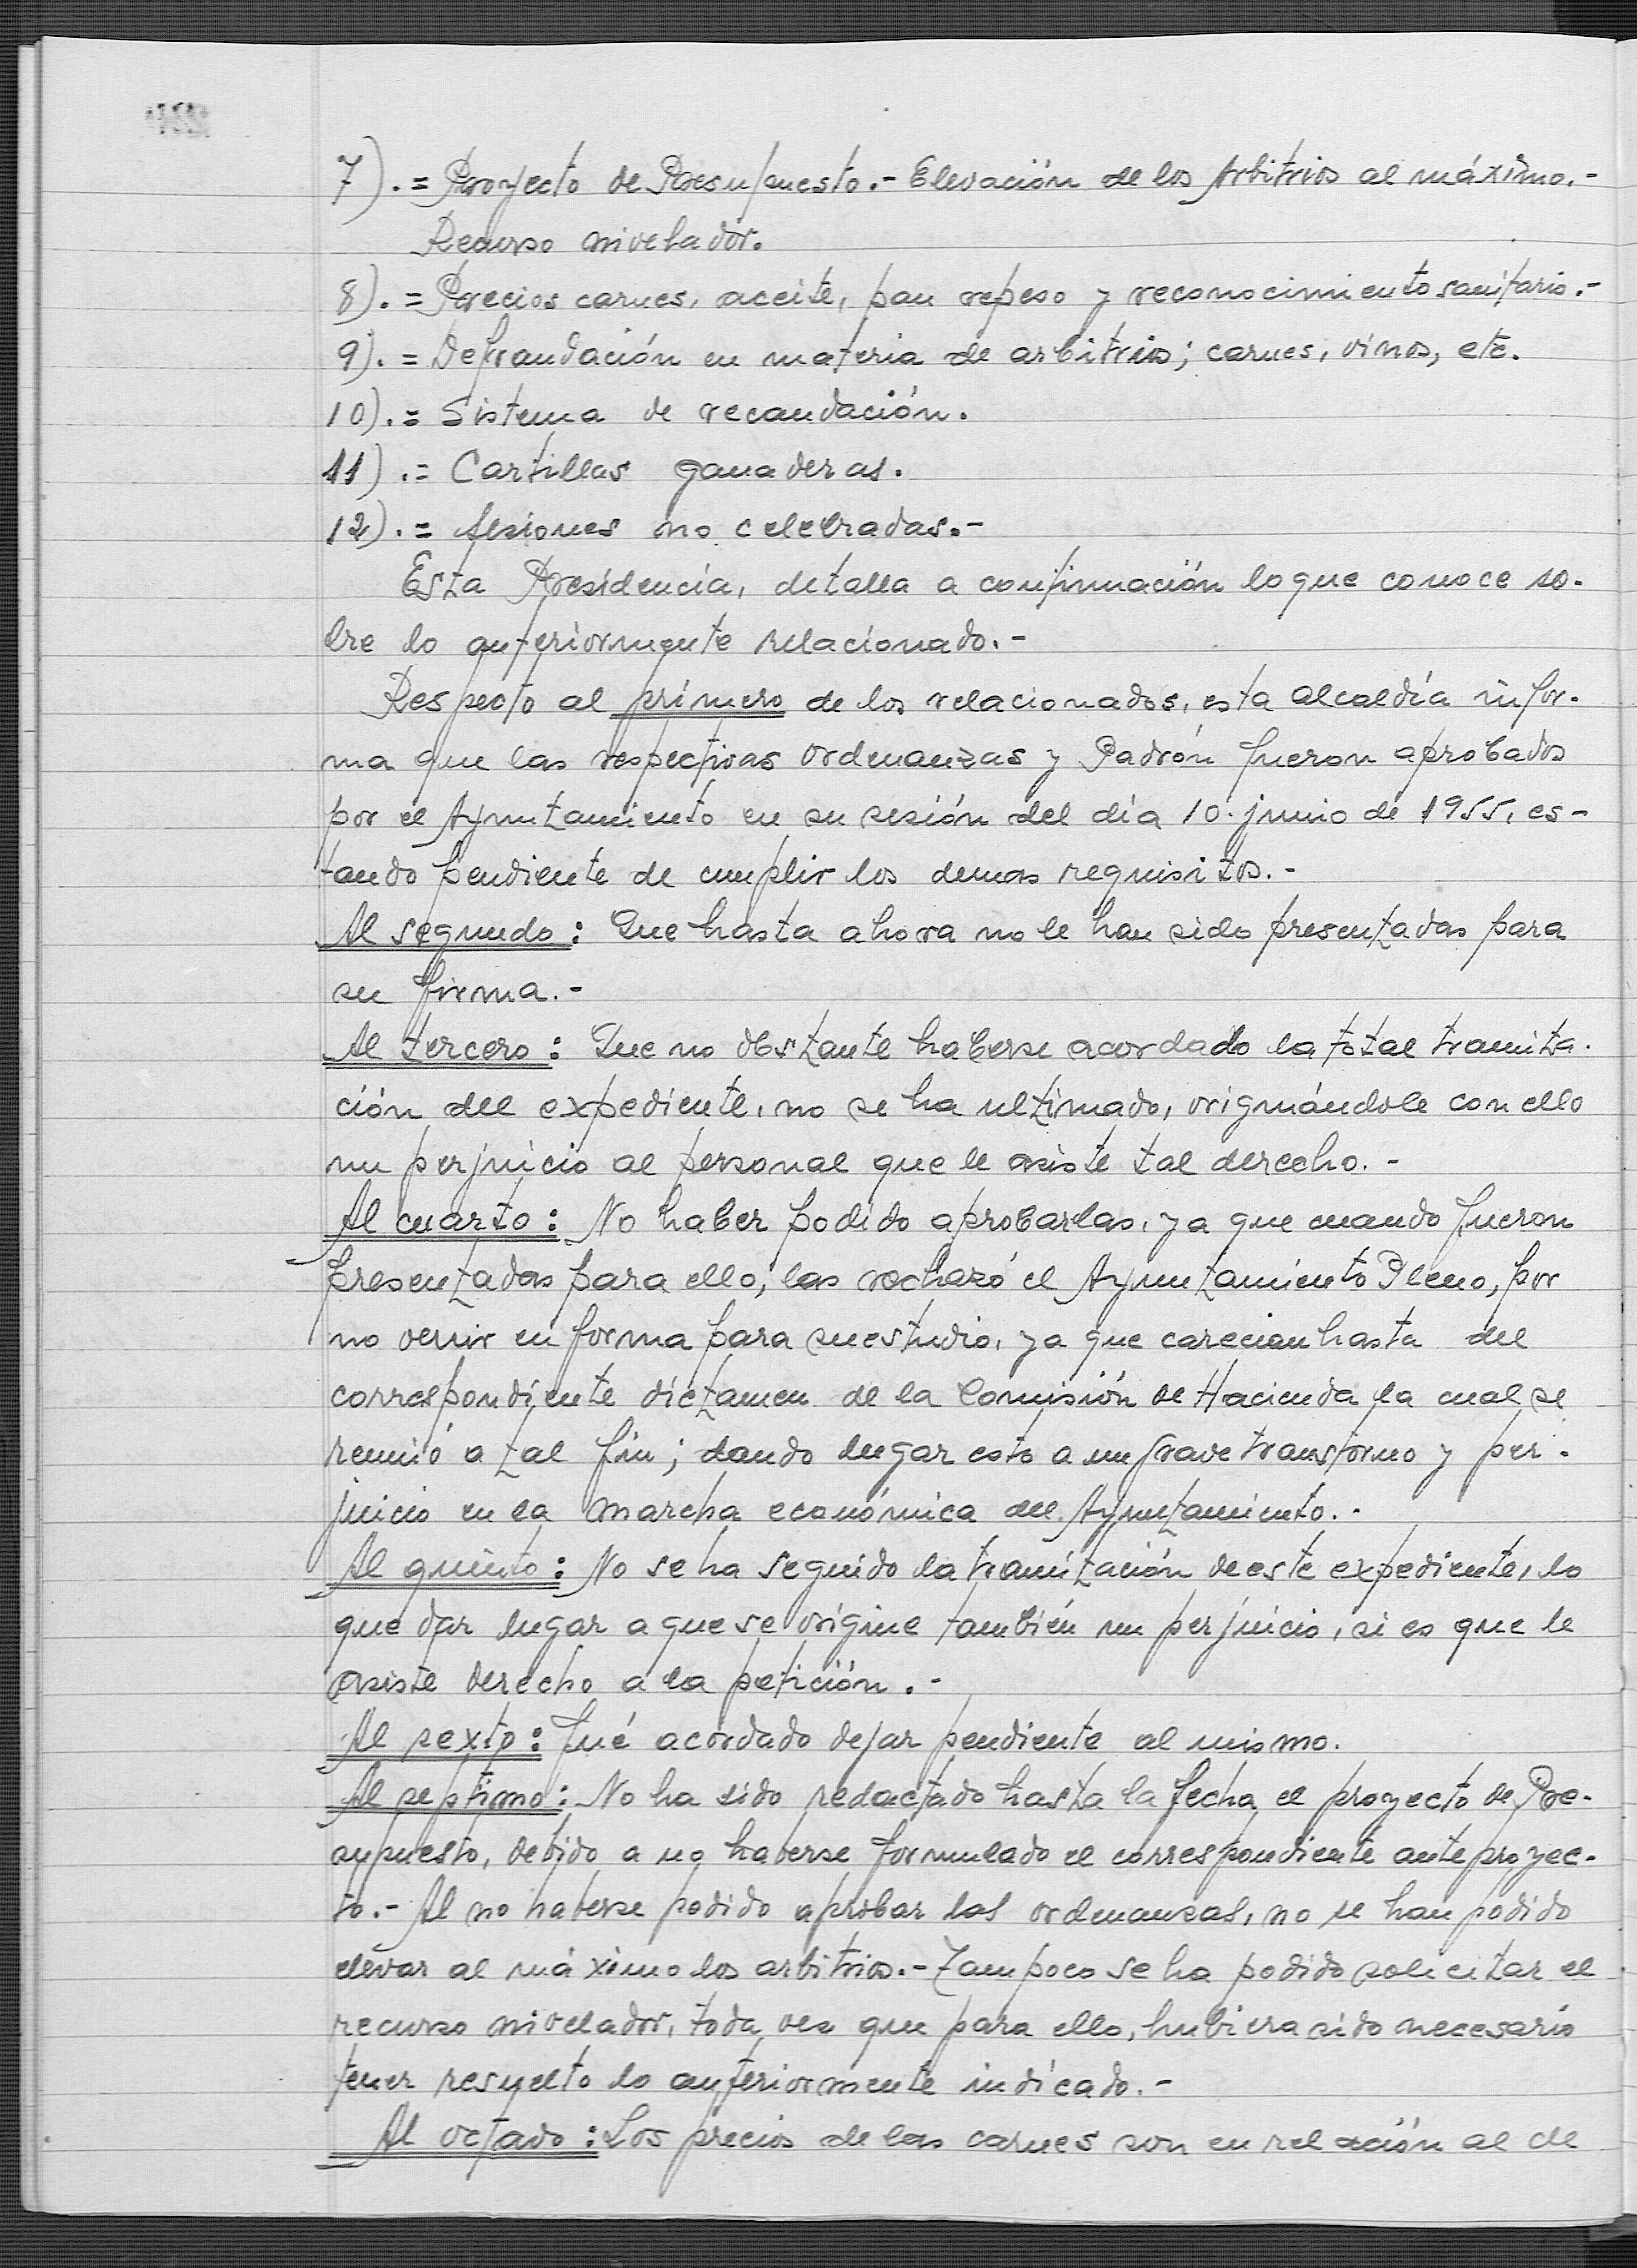 7).= Proyecto de Presupuesto.- Elevación de los Arbitrios al máximo.-
Recurso nivelador.
8).= Precios carnes, aceite, pan repeso y reconocimiento sanitario.-
9).= Defraudación en materia de arbitrios; carnes, vinos, etc.
10).= Sistema de recaudación.
11).= Cartillas ganaderas.
12).= Sesiones no celebradas.-
Esta Presidencia, detalla a continuación lo que conoce so-
bre lo anteriormente relacionado.-
Respecto al primero de los relacionados, esta alcaldía infor-
ma que las respectivas ordenanzas y Padrón fueron aprobados
por el Ayuntamiento en su sesión del día 10. junio de 1955, es-
tando pendiente de cumplir los demas requisitos.-
Al segundo: Que hasta ahora no le han sido presentadas para
su firma.-
Al tercero: Que no obstante haberse acordado la total tramita-
ción del expediente, no se ha ultimado, originándole con ello
un perjuicio al personal que le asiste tal derecho.-
Al cuarto: No haber podido aprobarlas, ya que cuando fueron
presentadas para ello, las rechazó el Ayuntamiento Pleno, por
no venir en forma para su estudio, ya que carecian hasta del
correspondiente dictamen de la Comisión de Hacienda la cual se
reunió a tal fin; dando lugar esto a un grave transtorno y per-
juicio en la marcha económica del Ayuntamiento.-
Al quinto: No se ha seguido la tramitación de este expediente, lo
que dar lugar a que se origine también un perjuicio, si es que le
asiste derecho a la petición.-
Al sexto: Fué acordado dejar pendiente al mismo.
Al septimo: No ha sido redactado hasta la fecha el proyecto de Pre-
supuesto, debido a no haberse formulado el correspondiente anteproyec-
to.- Al no haberse podido aprobar las ordenanzas, no se han podido
elevar al máximo los arbitrios.- Tampoco se ha podido solicitar el
recurso nivelador, toda vez que para ello, hubiera sido necesario
tener resuelto lo anteriormente indicado.-
Al octavo: Los precios de las carnes son en relación al de